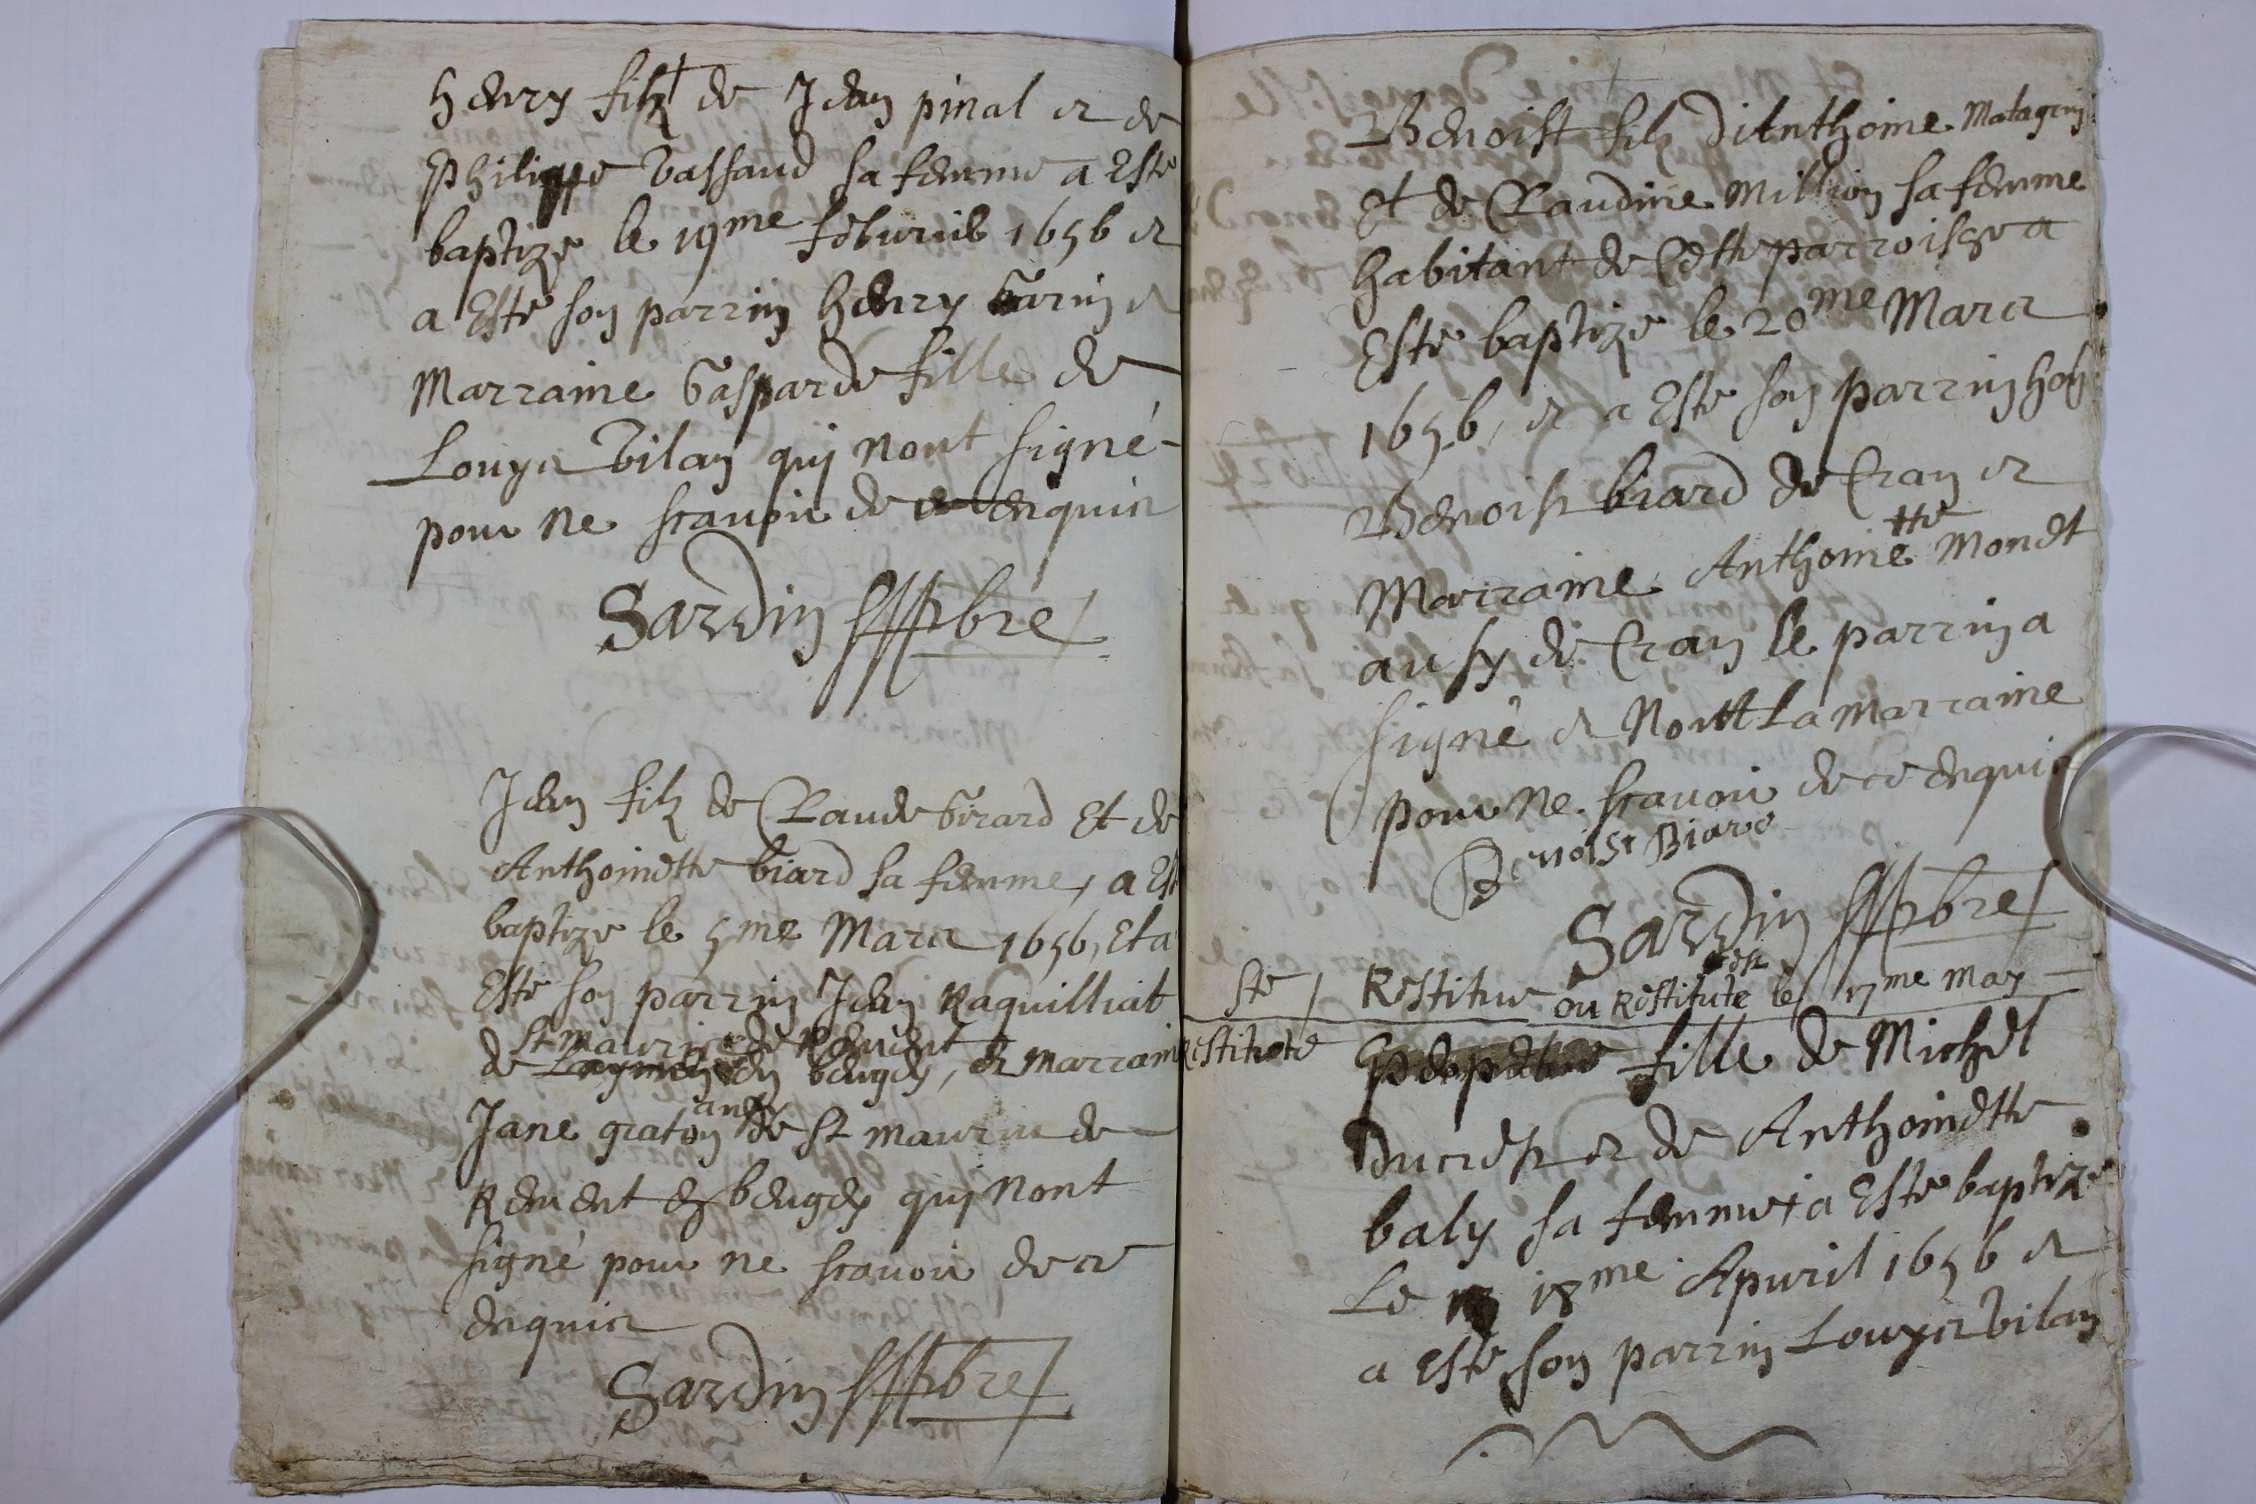 henry filz de Jean pinal et de
Philippe Vassaud sa femme a Este
baptize le 19me feburier 1656 et
a Este son parrin henry Garin et
Marraine Gasparde fille de
Louys Vilan quj nont signé
pour ne scauoir de ce enquis
Sardin pbre
Jean filz de Claude Girard Et de
Anthoinette biard sa femme, a Este
baptize le 5me Mars 1656, Et a
Este son parrin Jean Raquilliat
St maurice de Rement
de en beugey, et marraine
Jane graton de St maurice de
Rement en beugey quj nont
signé pour ne scauoir de ce
enquis
Sardin pbre
Benoist filz d'Anthoine Matagrin
Et de Claudine Million sa femme
habitant de Cette parroisse a
Este baptize le 20me Mars
1656, et a Este son parrin hon
Benoist biard de Cran et
Marraine Anthoinette Monet
aussy de Cran le parrin a
signé et Non la marraine
pour ne scauoir de ce enquis
Benoist Biard
Sardin pbre
ste Restitue ou Restitute le 17me may
Restitute fille de Michel
Ducrest et de Anthoinette
baly sa femme a Este baptize
Le 18me Apuril 1656 et
a Este son parrin Louys Vilan